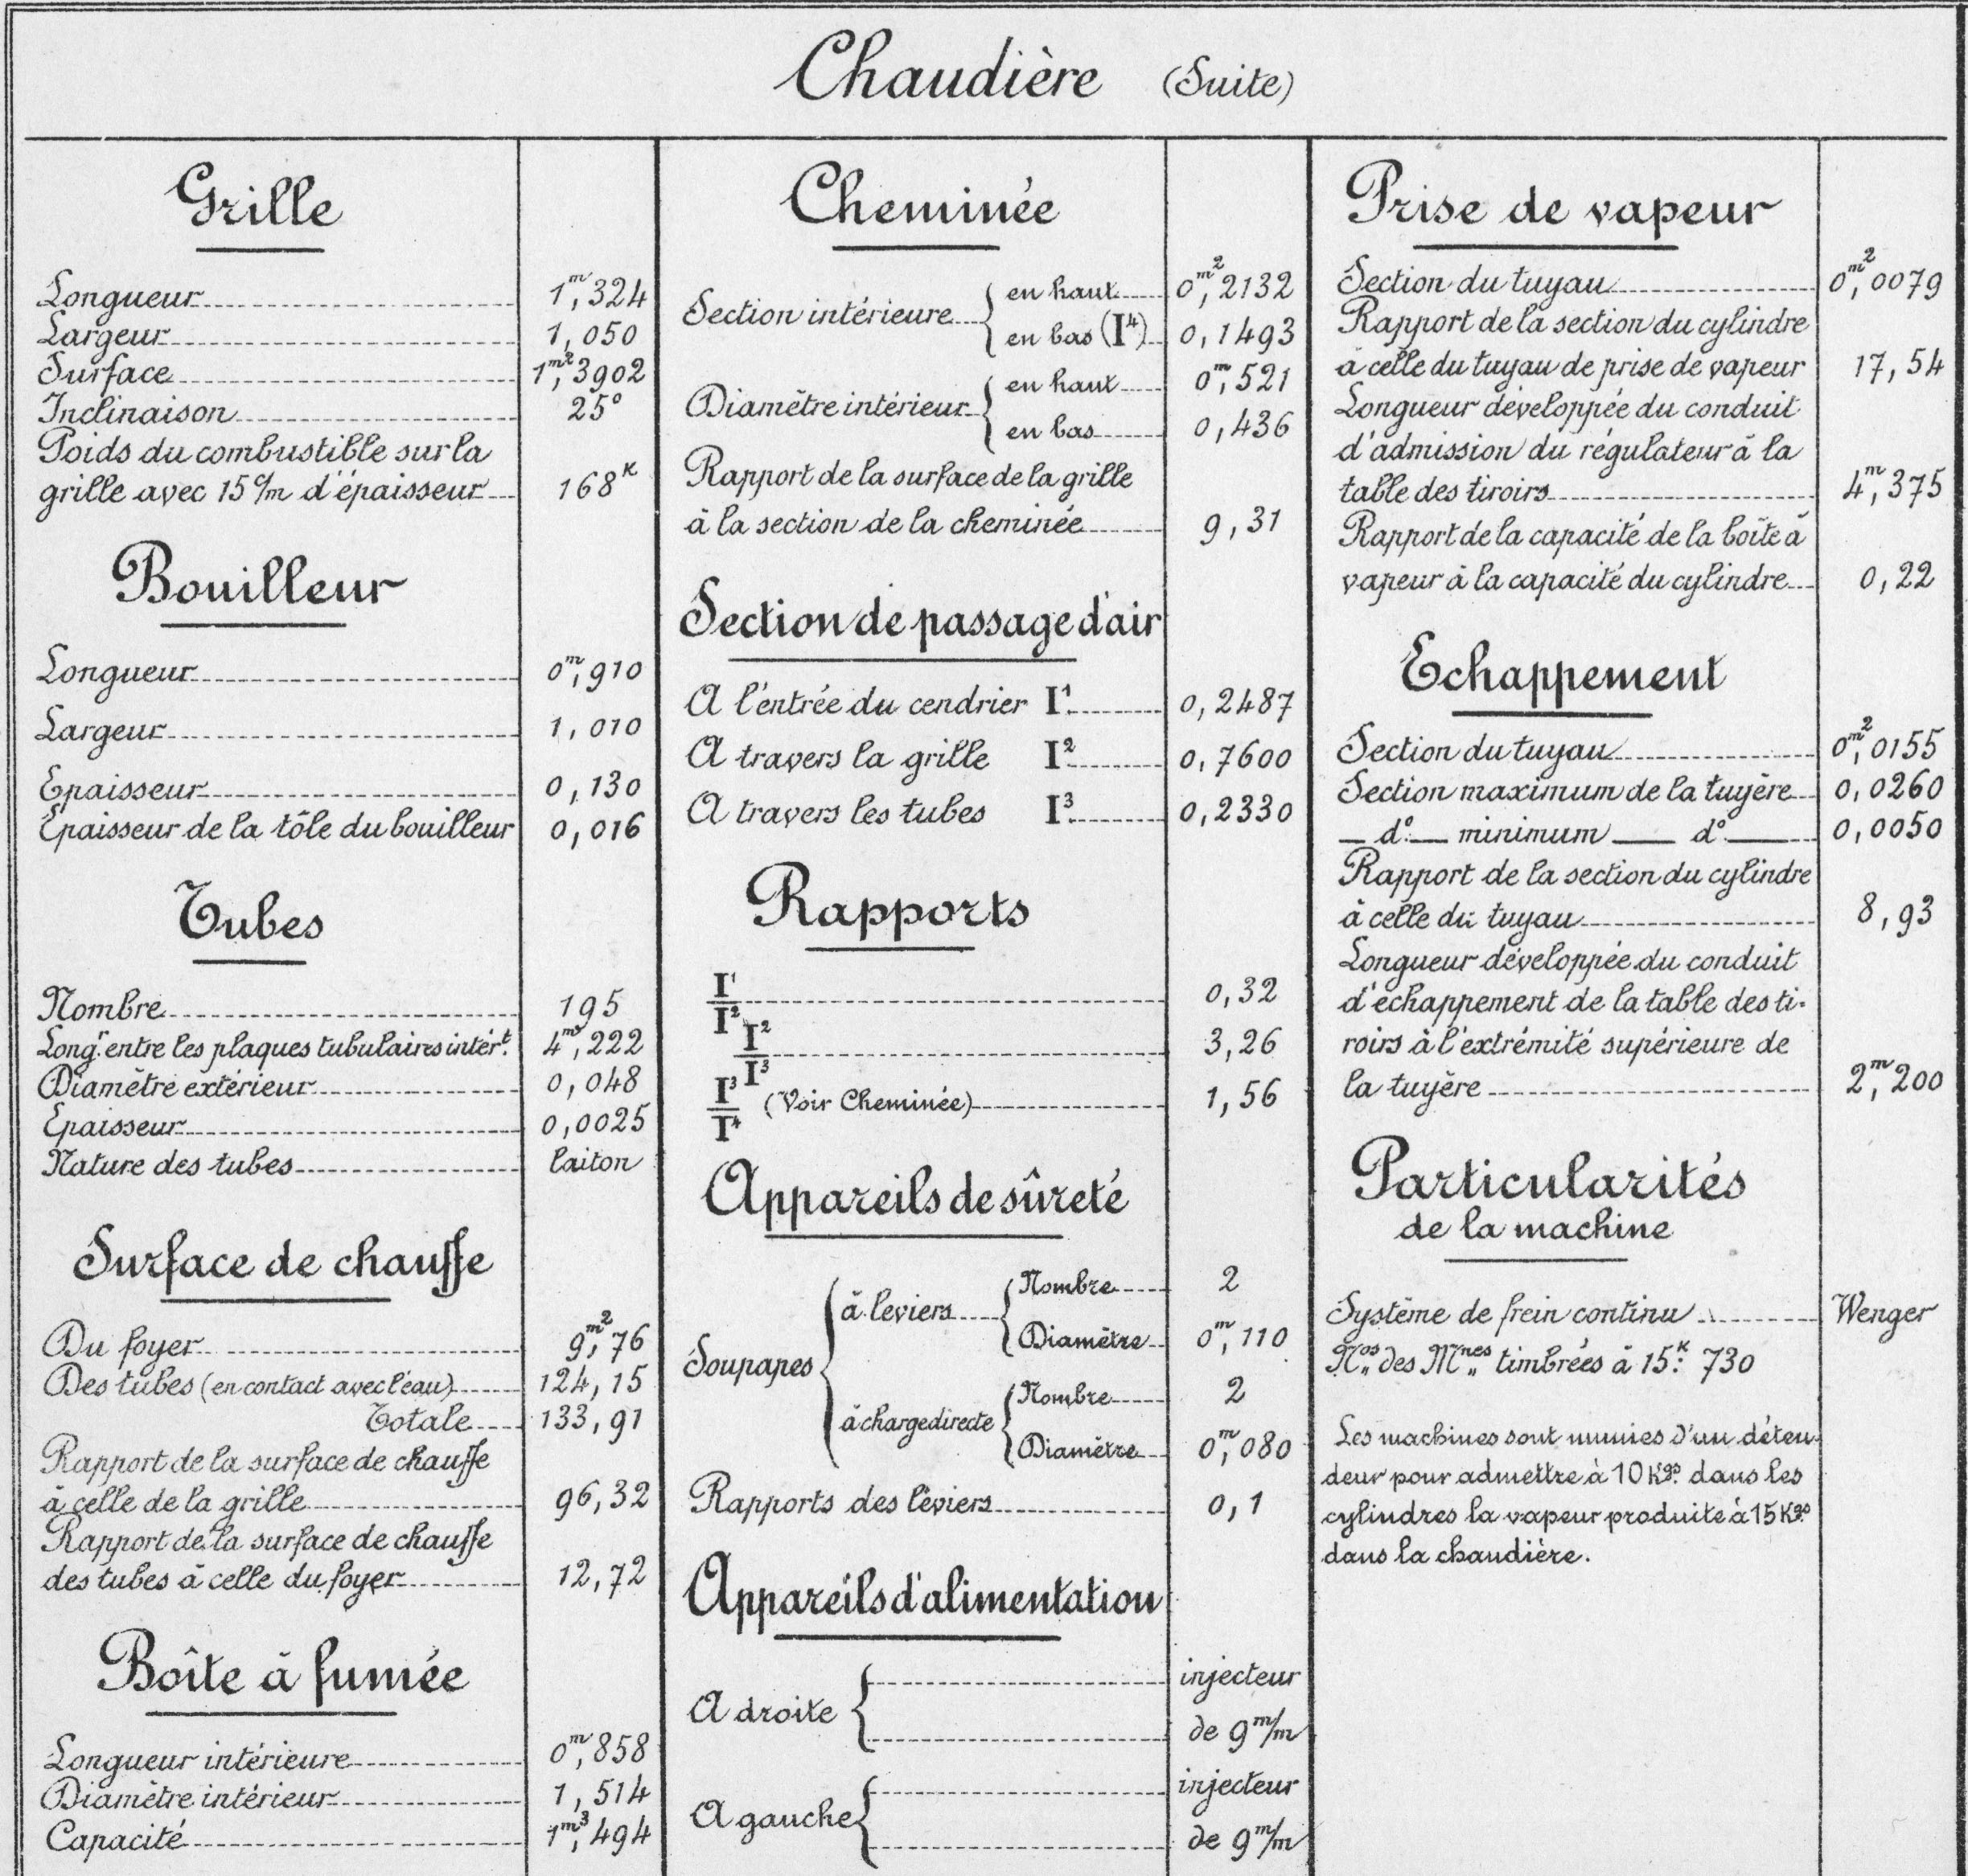 Chaudière (Suite)
Grille
Longueur 1m,324
Largeur 1,050
Surface 1m²,3902
Inclinaison 25°
Poids du combustible sur la
grille avec 15 c/m d'épaisseur 168K
Bouilleur
Longueur 0m,910
Largeur 1,010
Epaisseur 0,130
Epaisseur de la tôle du bouilleur 0,016
Tubes
Nombre 195
Longr entre les plaques tubulaires intért. 4m,222
Diamètre extérieur 0,048
Epaisseur 0,0025
Nature des tubes laiton
Surface de chauffe
Du foyer 9m²,76
Des tubes (en contact avec l'eau) 124,15
Totale 133,91
Rapport de la surface de chauffe
à celle de la grille 96,32
Rapport de la surface de chauffe
des tubes à celle du foyer 12,72
Boîte à fumée
Longueur intérieure 0m,858
Diamètre intérieur 1,514
Capacité 1m³,494
Cheminée
Section intérieure { en haut 0m²,2132
en bas (I⁴) 0,1493
Diamètre intérieur { en haut 0m,521
en bas 0,436
Rapport de la surface de la grille
à la section de la cheminée 9,31
Section de passage d'air
A l'entrée du cendrier I¹ 0,2487
A travers la grille I² 0,7600
A travers les tubes I³ 0,2330
Rapports
I¹/I² 0,32
I²/I³ 3,26
I³/I⁴ (Voir Cheminée) 1,56
Appareils de sûreté
Soupapes { à leviers { Nombre 2
Diamètre 0m,110
à charge directe { Nombre 2
Diamètre 0m,080
Rapports des léviers 0,1
Appareils d'alimentation
A droite { injecteur
de 9 m/m
A gauche { injecteur
de 9 m/m
Prise de vapeur
Section du tuyau 0m²,0079
Rapport de la section du cylindre
à celle du tuyau de prise de vapeur 17,54
Longueur développée du conduit
d'admission du régulateur à la
table des tiroirs 4m,375
Rapport de la capacité de la boîte à
vapeur à la capacité du cylindre 0,22
Echappement
Section du tuyau 0m²,0155
Section maximum de la tuyère 0,0260
— d°. — minimum — d° — 0,0050
Rapport de la section du cylindre
à celle du tuyau 8,93
Longueur développée du conduit
d'échappement de la table des ti-
roirs à l'extrémité supérieure de
la tuyère 2m,200
Particularités
de la machine
Système de frein continu Wenger
Nos des Mnes timbrées à 15K: 730
Les machines sont munies d'un déten-
deur pour admettre à 10 Kgs. dans les
cylindres la vapeur produite à 15 Kgs.
dans la chaudière.